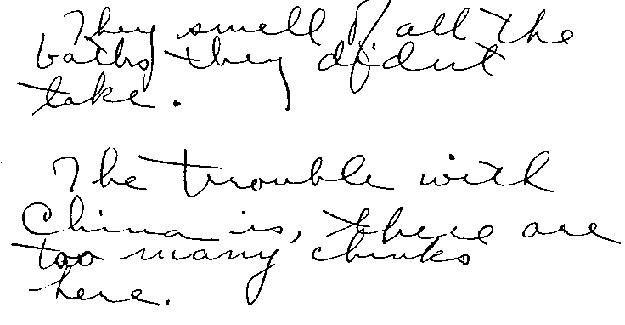 They smell of all the
baths they didnt
take.
The trouble with
China is, there are
too many chinks
here.